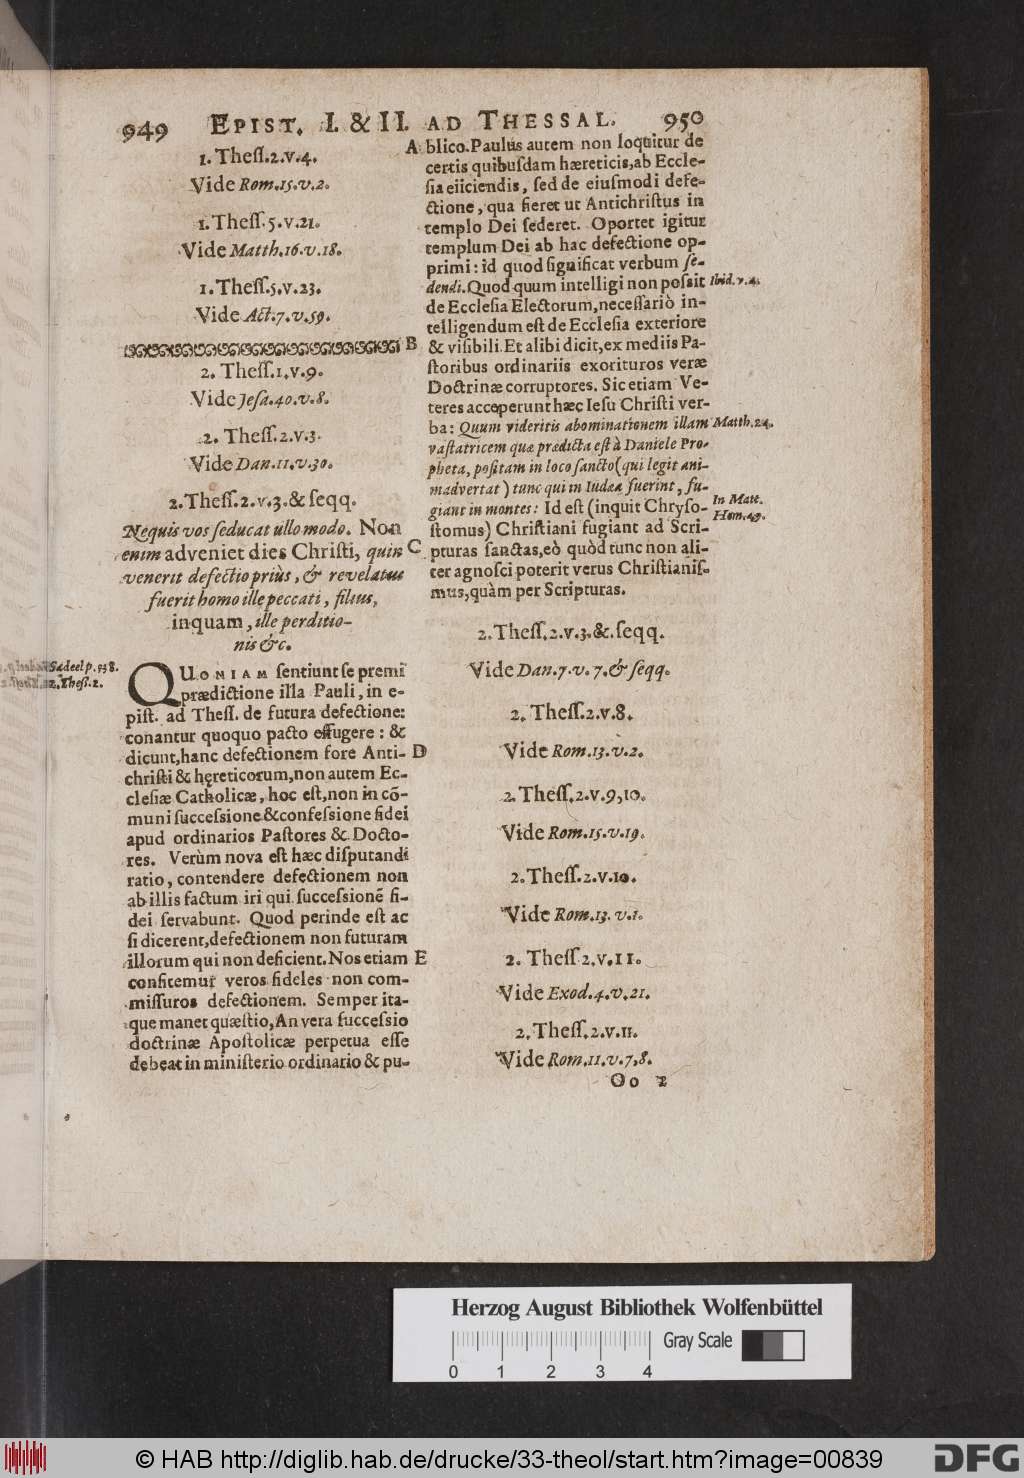 949 EPIST. I. & II. AD THESSAL. 950
1. Theſſ.2.v.4.
Vide Rom.15.v.2.
1. Theſſ.5.v.21.
Vide Matth.16.v.18.
1. Theſſ.5.v.23.
Vide Act.7.v.59.
B
2. Theſſ.1.v.9.
Vide Jeſa.40.v.8.
2. Theſſ.2.v.3.
Vide Dan.11.v.30.
2. Theſſ.2.v.3.& ſeqq.
Nequis vos ſeducat ullo modo. Non
enim adveniet dies Chriſti, quin C
venerit defectio priùs, & revelatus
fuerit homo ille peccati, filius,
inquam, ille perditio-
nis &c.
Sadeel p.938.
2. Theſ. 2.
QUONIAM ſentiunt ſe premi
prædictione illa Pauli, in e-
piſt. ad Theſſ. de futura defectione:
conantur quoquo pacto effugere: &
dicunt, hanc defectionem fore Anti- D
chriſti & hęreticorum, non autem Ec-
cleſiæ Catholicæ, hoc eſt, non in cõ-
muni ſucceſsione & confeſsione fidei
apud ordinarios Paſtores & Docto-
res. Verùm nova eſt hæc diſputandi
ratio, contendere defectionem non
ab illis factum iri qui ſucceſsionẽ fi-
dei ſervabunt. Quod perinde eſt ac
ſi dicerent, defectionem non futuram
illorum qui non deficient. Nos etiam E
confitemur veros fideles non com-
miſſuros defectionem. Semper ita-
que manet quæſtio, An vera ſucceſsio
doctrinæ Apoſtolicæ perpetua eſſe
debeat in miniſterio ordinario & pu-
A blico. Paulus autem non loquitur de
certis quibuſdam hæreticis, ab Eccle-
ſia eiiciendis, ſed de eiuſmodi defe-
ctione, qua fieret ut Antichriſtus in
templo Dei ſederet. Oportet igitur
templum Dei ab hac defectione op-
primi: id quod ſignificat verbum ſe-
dendi. Quod quum intelligi non poſsit Ibid. v. 4.
de Eccleſia Electorum, neceſſariò in-
telligendum eſt de Eccleſia exteriore
& viſibili. Et alibi dicit, ex mediis Pa-
ſtoribus ordinariis exorituros veræ
Doctrinæ corruptores. Sic etiam Ve-
teres acceperunt hæc Ieſu Chriſti ver-
ba: Quum videritis abominationem illam Matth.24.
vaſtatricem quæ prædicta eſt à Daniele Pro-
pheta, poſitam in loco ſancto (qui legit ani-
madvertat) tunc qui in Iudæa fuerint, fu-
giant in montes: Id eſt (inquit Chryſo- In Matt.
ſtomus) Chriſtiani fugiant ad Scri- Hom.49.
pturas ſanctas, eò quòd tunc non ali-
ter agnoſci poterit verus Chriſtianiſ-
mus, quàm per Scripturas.
2. Theſſ.2.v.3.&.ſeqq.
Vide Dan.7.v.7.& ſeqq.
2. Theſſ.2.v.8.
Vide Rom.13.v.2.
2. Theſſ.2.v.9,10.
Vide Rom.15.v.19.
2. Theſſ.2.v.10.
Vide Rom.13.v.1.
2. Theſſ.2.v.11.
Vide Exod.4.v.21.
2. Theſſ.2.v.11.
Vide Rom.11.v.7,8.
Oo 2
Herzog August Bibliothek Wolfenbüttel
Gray Scale
0 1 2 3 4
© HAB http://diglib.hab.de/drucke/33-theol/start.htm?image=00839
DFG